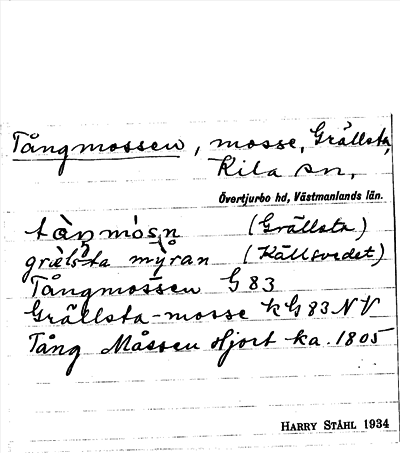 Tångmossen, mosse, Grällsta,
Kila sn,
Övertjurbo hd, Västmanlands län.
tàŋmòsn (Grällsta)
grälsta myran (Källsvedet)
Tångmossen G83
Grällsta-mosse kG83NV
Tång Måssen Hjort ka. 1805
HARRY STÅHL 1934